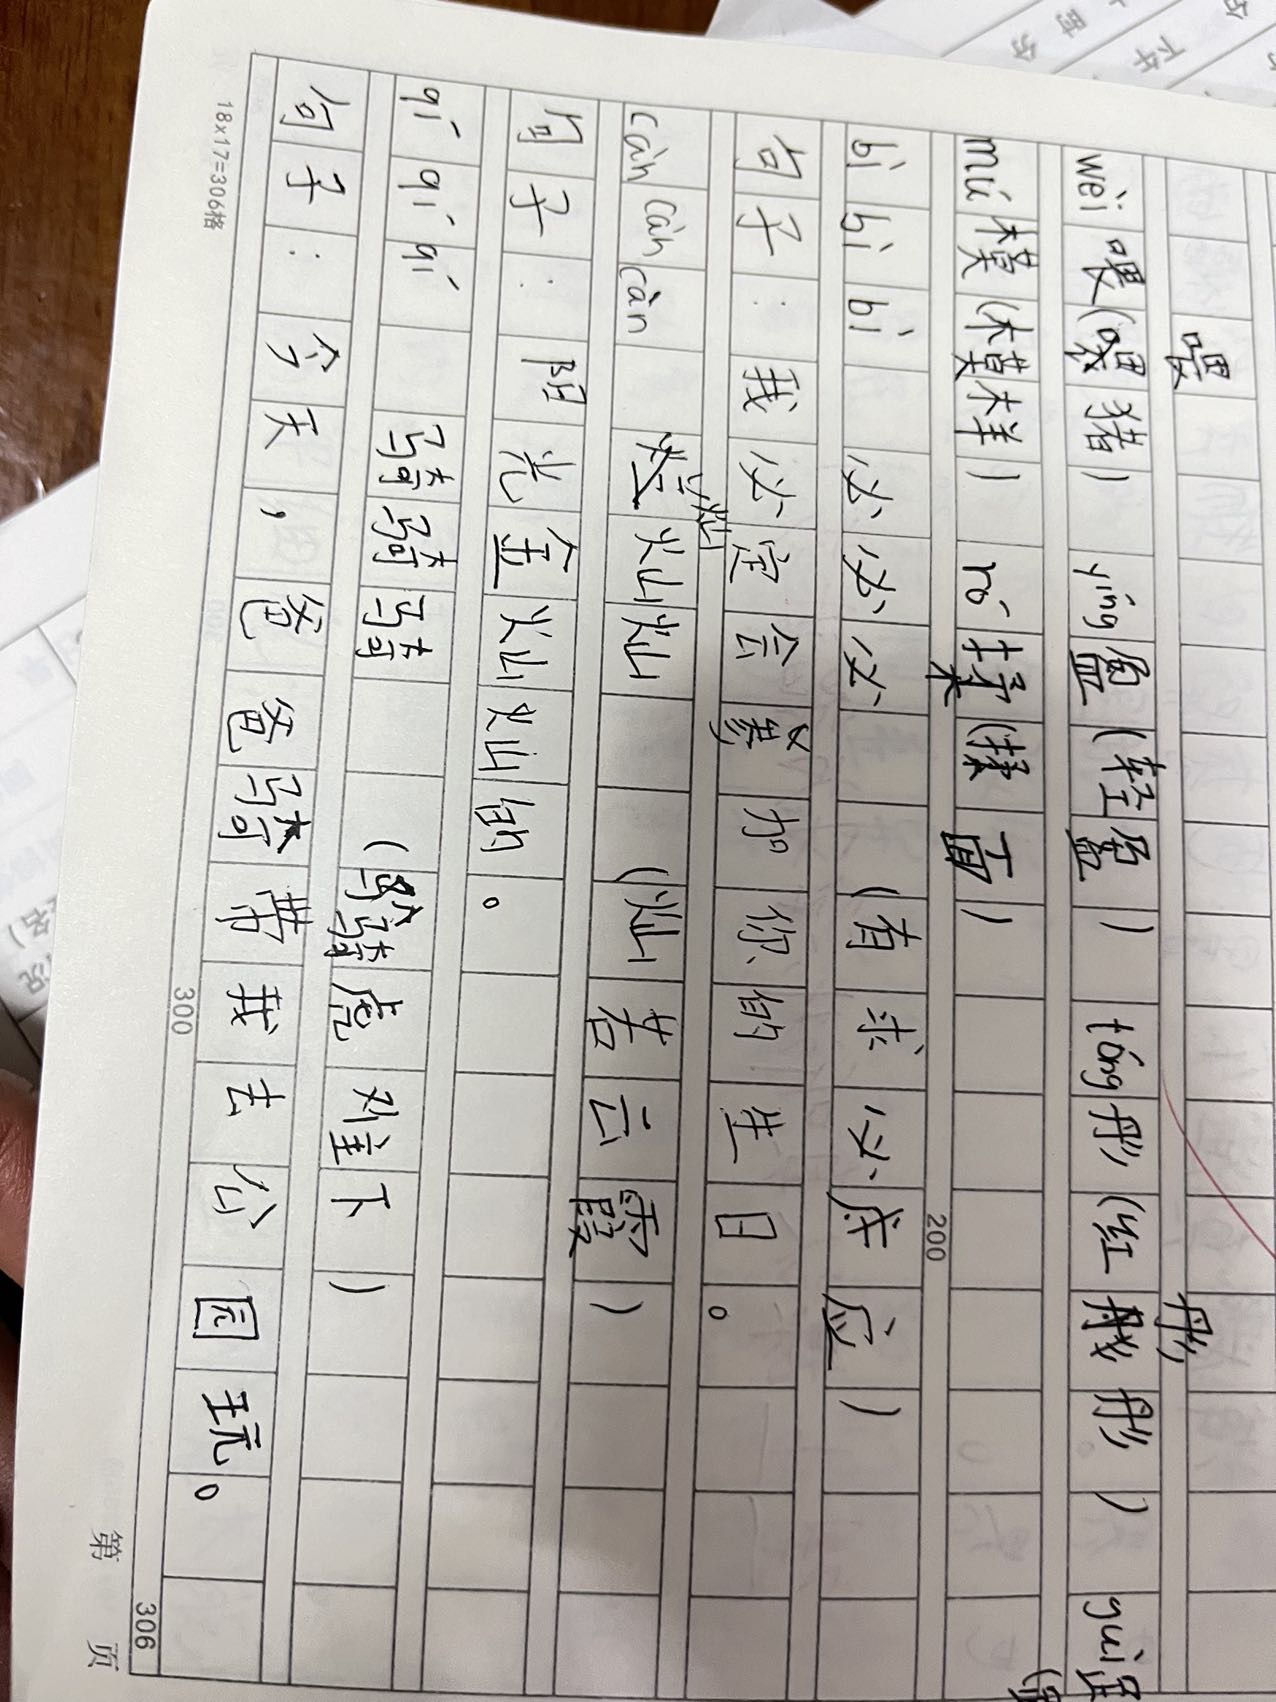 喂 彤
wèi 喂(喂猪) yíng 盈(轻盈) tóng 彤(红彤彤) guì
mú 模(模样) róu 揉(揉面)
200
bì bì bì 必必必 (有求必应)
句子:我必定会参加你的生日。
càn càn càn 灿灿灿 (灿若云霞)
句子:阳光金灿灿的。
qí qí qí 骑骑骑 (骑虎难下)
句子:今天,爸爸骑带我去公园玩。
300
306
18×17=306格
第 页